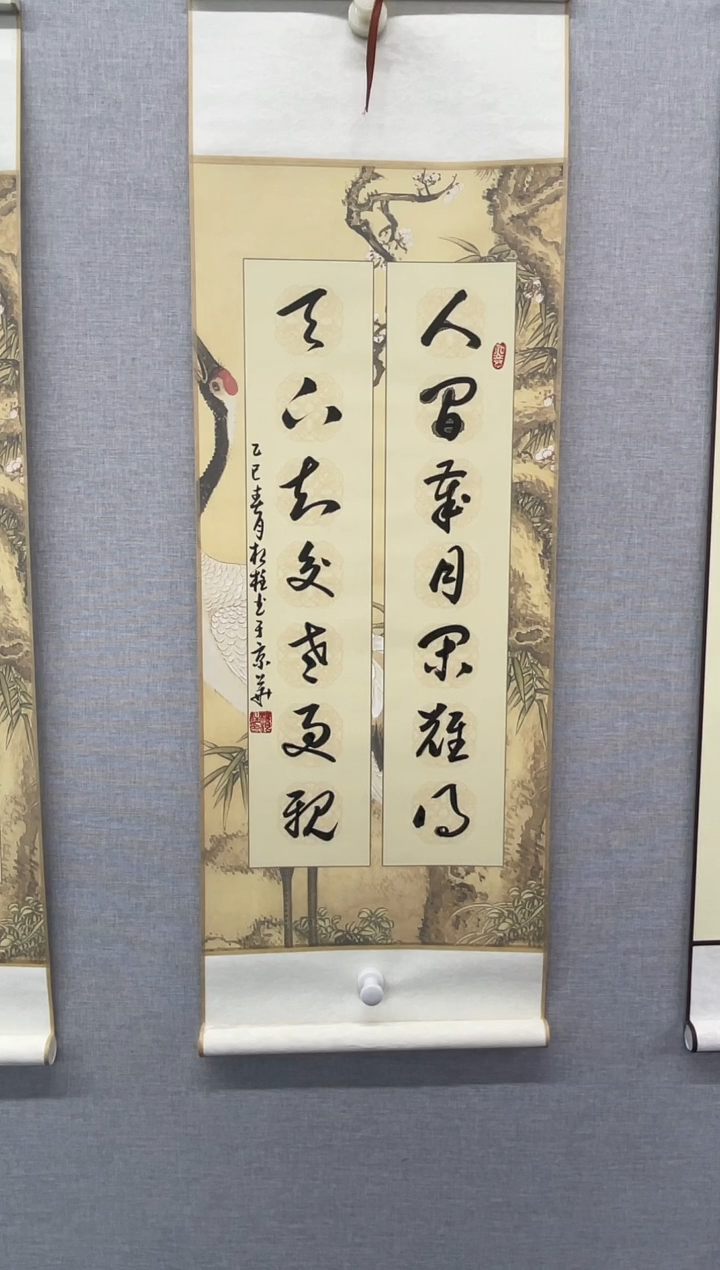 人間歲月閑難得
天下知交老更親
乙巳春月 书于京华